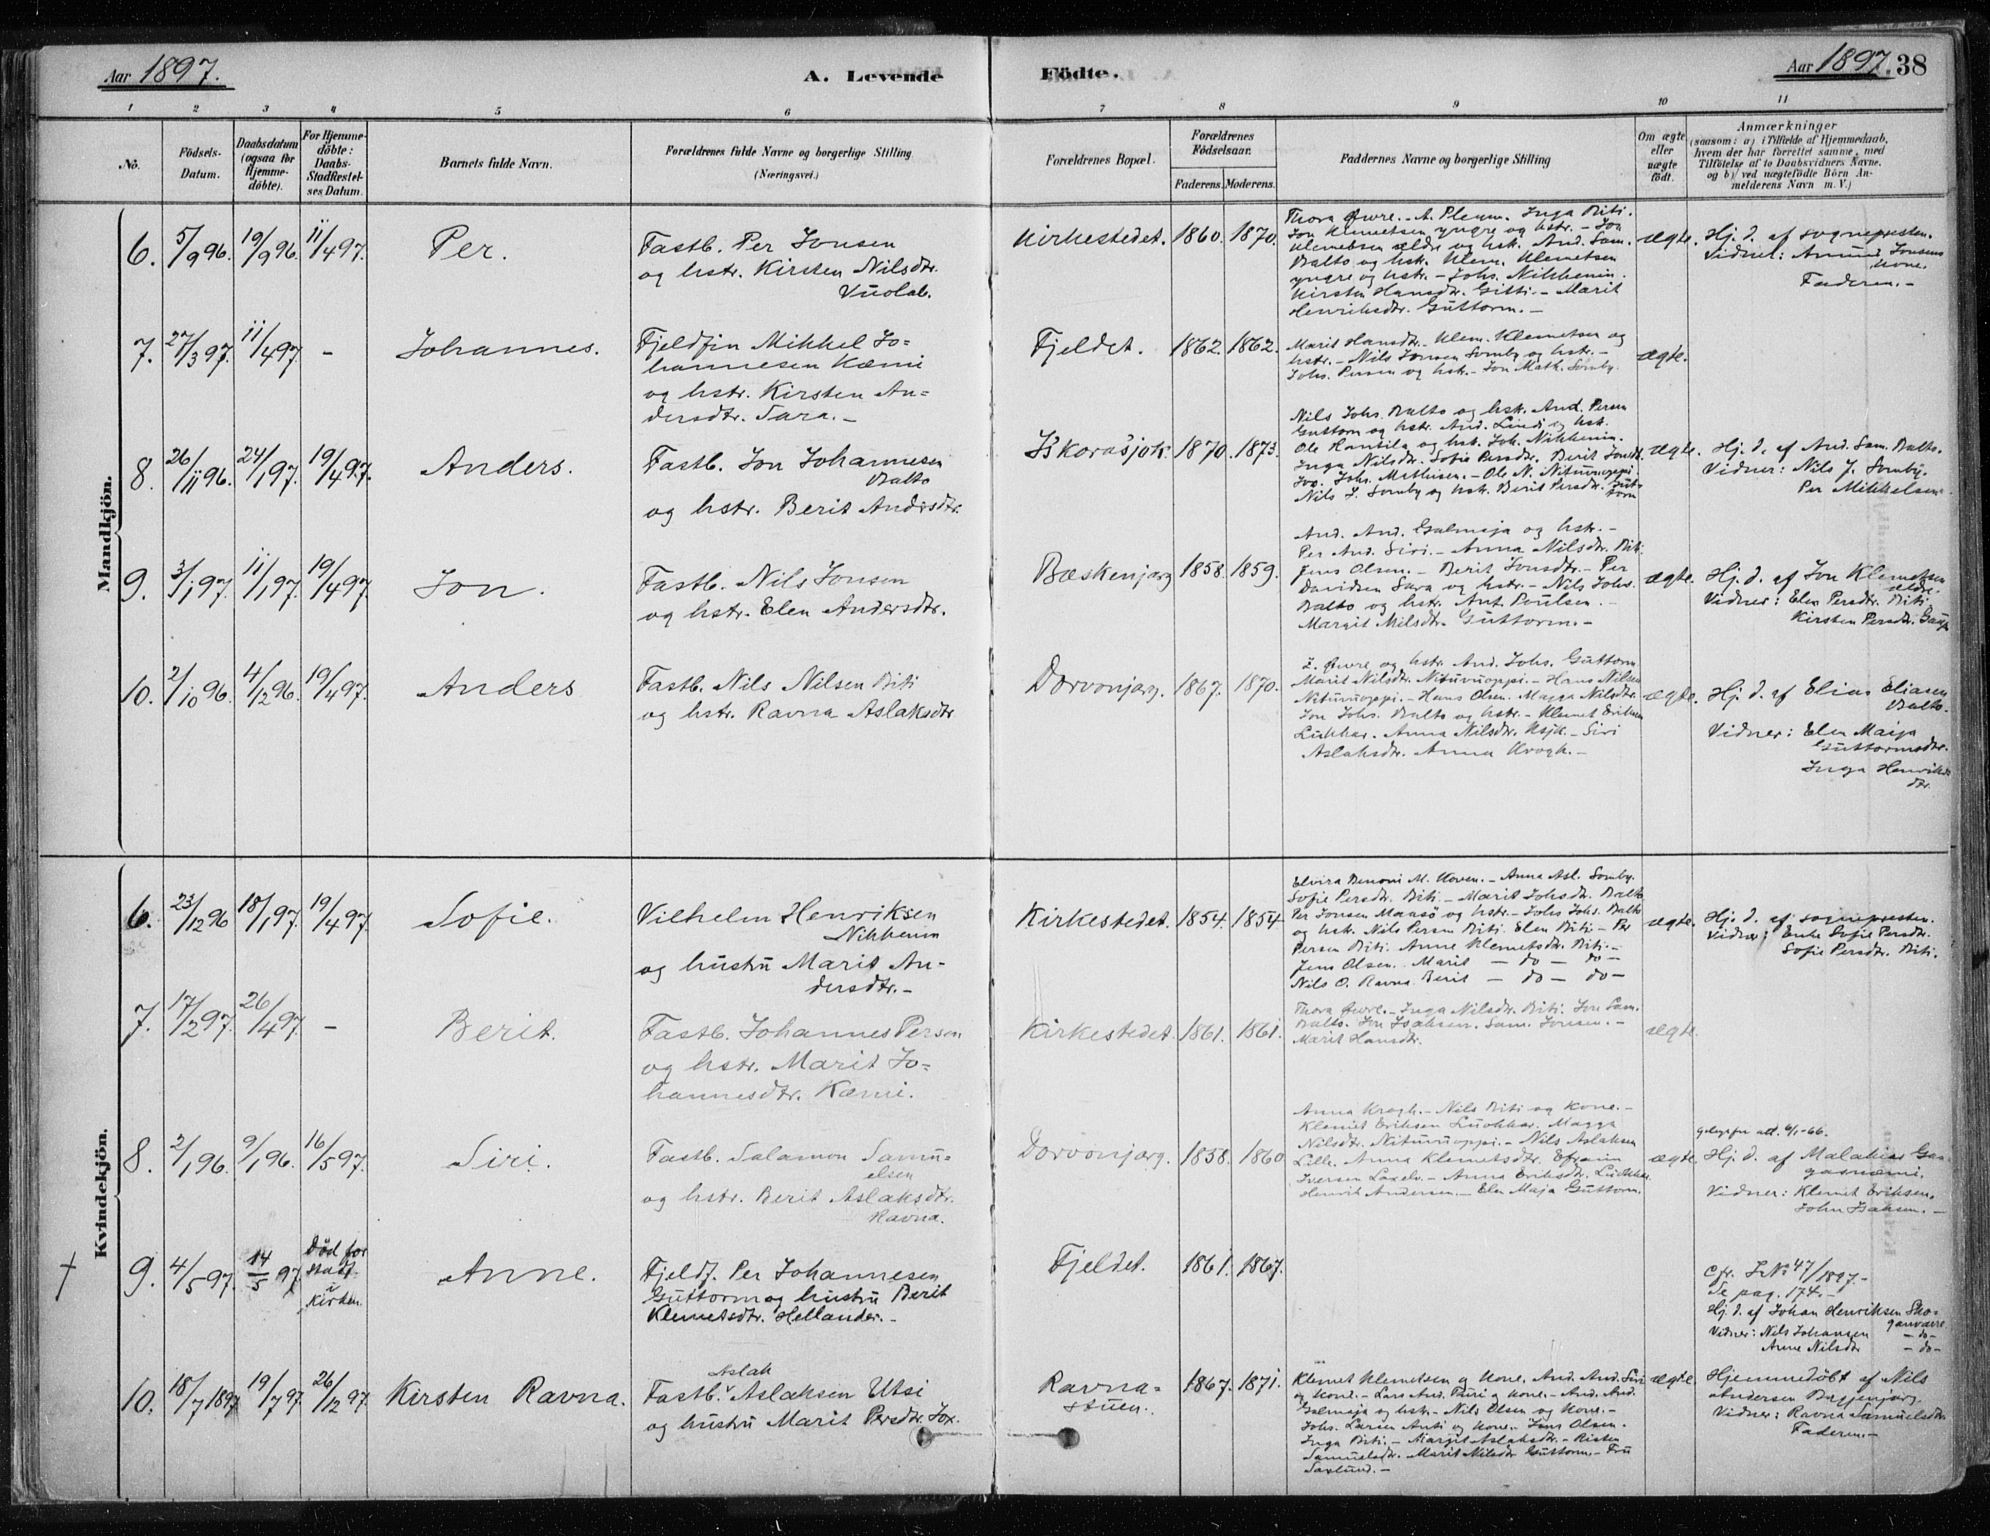 Aar 1897.
A. Levende
Födte.
Aar 1897. 38
1 2 3 4 5 6 7 8 9 10 11
No.
Födsels-
Datum.
Daabsdatum
(ogsaa for
Hjemme-
döbte).
For Hjemme-
döbte:
Daabs-
Stadfæstel-
ses Datum.
Barnets fulde Navn.
Forældrenes fulde Navne og borgerlige Stilling
(Næringsvei.)
Forældrenes Bopæl.
Forældrenes
Födselsaar.
Faderens. Moderens.
Faddernes Navne og borgerlige Stilling
Om ægte
eller
uægte
födt.
Anmærkninger
(saasom: a) i Tilfælde af Hjemmedaab,
hvem der har forrettet samme, med
Tilföielse af to Daabsvidners Navne,
og b) ved uægtefödte Börn An-
melderens Navn m. V.)
Mandkjön.
6. 5/9 96. 19/9 96. 11/4 97. Per.
Fastb. Per Jonsen
og hstr. Kirsten Nilsdtr.
Vuolab.
Kirkestedet. 1860. 1870.
Thora Øwre. - A. Pleym. Inga Biti.
Jon Klemetsen yngre og hstr. - Jon
Klemetsen ældre og hsk. And. Sam.
Balto og hsk. Klem. Klemetsen
yngre og hstr. - Johs. Nikkenin.
Kirsten Hansdtr. Gitti. - Marit
Henriksdtr. Guttorm. -
ægte.
Hj. d. af sognepresten.
Vidner: Amund Jonsens
kone.
Faderen. -
7. 27/3 97. 11/4 97. - Johannes.
Fjeldfin Mikkel Jo-
hannesen Kæmi
og hstr. Kirsten An-
dersdtr. Sara. -
Fjeldet. 1862. 1862.
Marit Hansdtr. Klem. Klemetsen og
hstr. - Nils Jonsen Somby og hstr. -
Johs. Persen og hsk. - Jon Math. Somby.
ægte.
8. 26/11 96. 24/1 97. 19/4 97. Anders.
Fastb. Jon Johannesen
Balto
og hstr. Berit Andersdtr.
Iskorasjok. 1870. 1873.
Nils Johs. Balto og hsk. And. Persen
Guttorm og hstr. And. Lindi og hsk.
Ole Rantila og hsk. Joh. Nikkenin.
Inga Nilsdtr. Sofie Persdtr. Berit Jonsdtr.
Jox. Johs. Mathisen. - Ole N. Nituvuoppi.
Nils J. Somby og hsk. Berit Persdtr. Gut-
torm
ægte.
Hj. d. af And. Sam. Balto.
Vidner: Nils J. Somby.
Per Mikkelsen.
9. 3/1 97. 11/1 97. 19/4 97. Jon.
Fastb. Nils Jonsen
og hstr. Elen Andersdtr.
Bæskenjarg 1858. 1859.
And. And. Galmeja og hstr. -
Per And. Siri. - Anna Nilsdtr. Biti.
Jens Olsen. - Berit Jonsdtr. - Per
Davidsen Sara og hstr. - Nils Johs.
Balto og hstr. Ant. Poulsen. -
Margit Nilsdtr. Guttorm. -
ægte.
Hj. d. af Jon Klemetsen
ældre.
Vidner: Elen Persdtr. Biti.
Kirsten Persdtr. Gaup
10. 2/10 96. 4/12 96. 19/4 97. Anders
Fastb. Nils Nilsen Biti
og hstr. Ravna Aslaksdtr
Dorvonjarg. 1867. 1870.
Z. Øwre og hstr. And. Johs. Guttorm
Marit Nilsdtr. Nituvuoppi. - Hans Nilsen
Nituvuoppi. - Hans Olsen. Magga Nilsdtr.
Jon Johs. Balto og hstr. - Klemet Eriksen
Lukkar. - Anna Nilsdtr. - Siri
Aslaksdtr. Anna Krogh. -
ægte.
Hj. d. af Elias Eliasen
Balto.
Vidner: Elen Maija
Guttormsdtr.
Inga Henriks
dtr.
Kvindekjön.
6. 23/12 96 18/1 97. 19/4 97. Sofie.
Vilhelm Henriksen
Nikkenin
og hustru Marit An-
dersdtr. -
Kirkestedet. 1854. 1854.
Elvira Benoni M. Koven. - Anna Asl. Somby.
Sofie Persdtr. Biti. - Marit Johsdtr. Balto
Per Jonsen Mansö og hstr. - Johs Johs. Balto
og hsk. Nils Persen Biti. Elen Biti. - Per
Persen Biti. Anne Klemetsdtr. Biti. -
Jens Olsen. Marit - do - do -
Nils O. Ravna. Berit - do - do -
ægte.
Hj. d. af sognepresten.
Vidner: Enke Sofie Persdtr.
Sofie Persdtr. Biti.
7. 17/2 97. 26/4 97. - Berit.
Fastb. Johannes Person
og hstr. Marit Jo-
hannesdtr. Kæmi.
Kirkestedet. 1861. 1861.
Thora Øwre. - Inga Nilsdtr. Biti. Jon Sam.
Balto. Jon Isaksen. Sam. Jonsen. -
Marit Hansdtr.
ægte.
8. 2/1 96. 9/1 96. 16/5 97. Siri.
Fastb. Salamon Samu-
elsen
og hstr. Berit Aslaksdtr.
Ravna.
Dorvonjarg. 1858. 1860
Anna Krogh. - Nils Biti og kone. -
Klemet Eriksen Luokkar. Magga
Nilsdtr. Nituvuoppi. - Nils Aslaksen
Lille. Anna Klemetsdtr. Efraim
Iversen Laxelv. - Anna Eriksdtr. Lukkar
Henrik Andersen. - Elen Maja Guttorm.
ægte.
att. 6/1-66.
Hj. d. af Malakias Ga-
gasnæmi.
Vidner: Klemet Eriksen.
John Isaksen. -
† 9. 4/5 97. 14/5 97
Död for
stadf.
i
Kirken.
Anne.
Fjeldf. Per Johannesen
Guttorm og hustru Berit
Klemetsdtr. Hellander. -
Fjeldet. 1861. 1867.
Cfr. J. No 47/1897. -
Se pag. 174. -
Hj. d. af Johan Henriksen Sko-
ganvarre
Vidner: Nils Johansen - do -
Anne Nilsdtr - do -
10. 18/7 1897 19/7 97. 26/12 97. Kirsten Ravna.
Aslak
Fastb. Aslaksen Utsi
og hustru Marit Persdtr. Jox.
Ravna-
stuen.
1867. 1871.
Klemet Klemetsen og Kone. And. And. Siri
og Kone. - Lars And. Turi og Kone. - And. And.
Galmeja og hsk. - Nils Olsen og Kone. -
Johs. Larsen Anti og Kone. Jens Olsen.
Inga Biti. - Margit Aslaksdtr. - Risten
Samuelsdtr. Marit Nilsdtr Guttorm. - Fru
Saxlund. -
ægte.
Hjemmedöbt af Nils
Andersen
Vidner: Ravna Samuelsdtr
Faderen. -